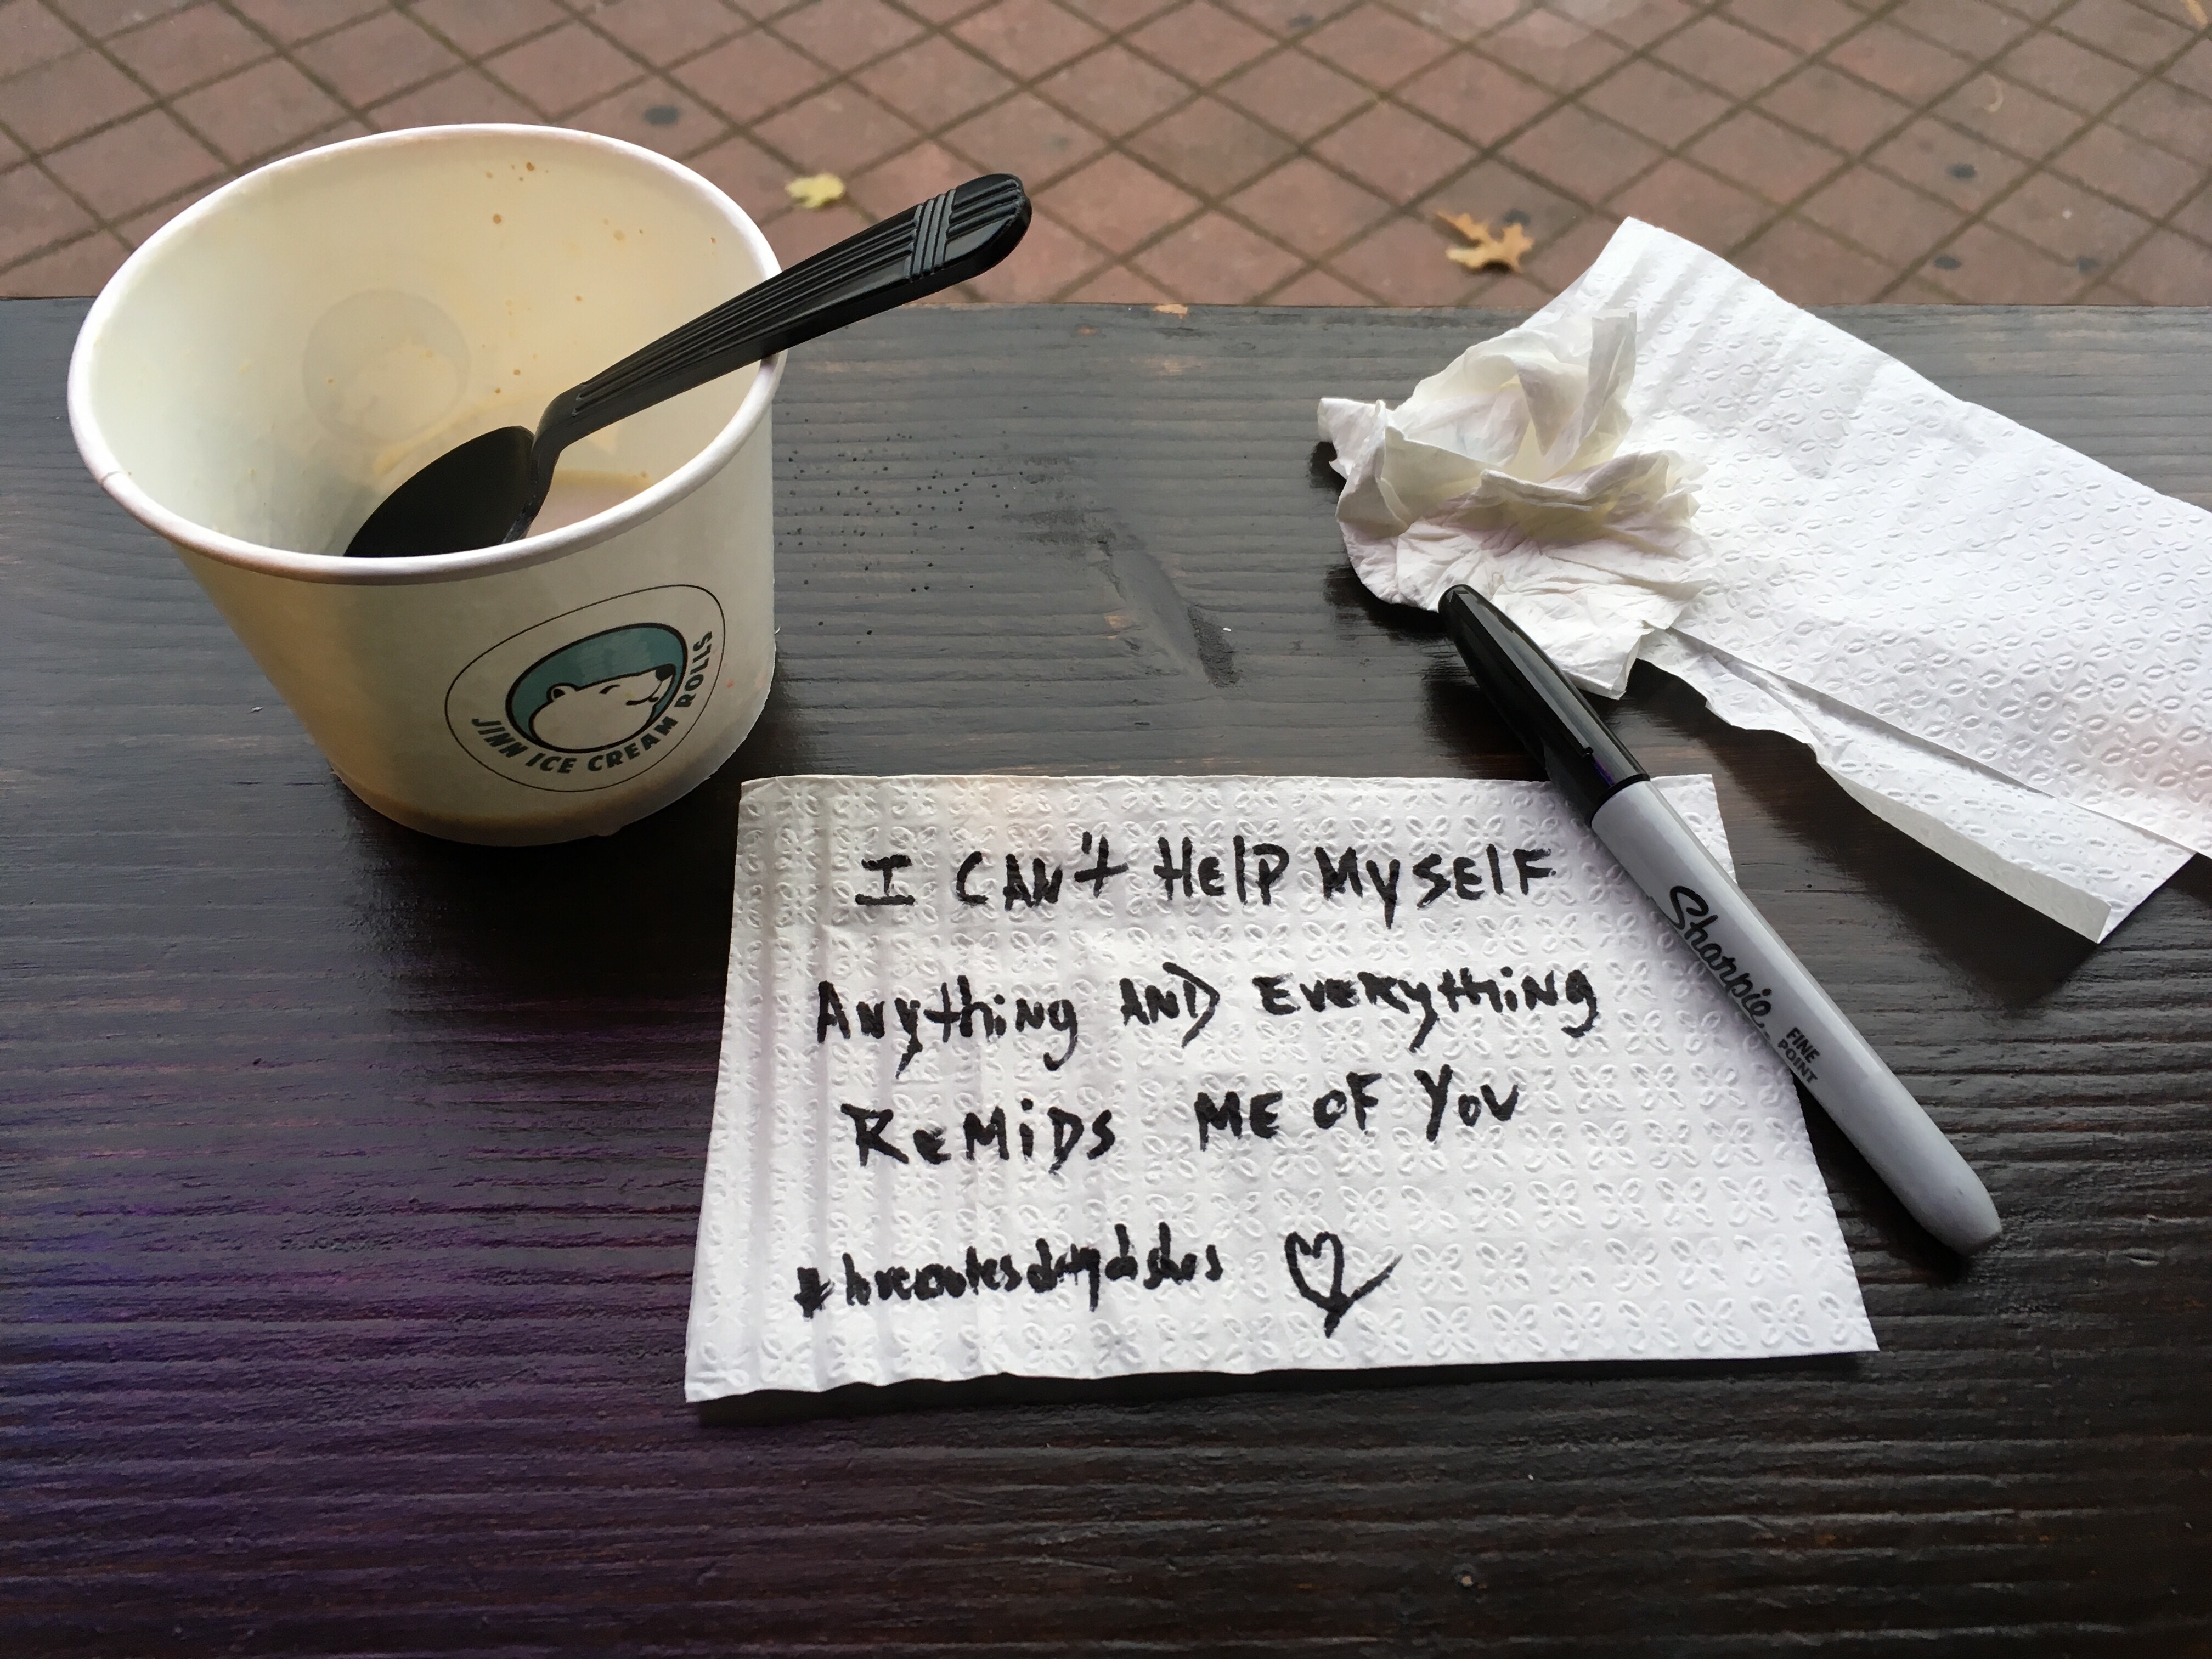 JINN ICE CREAM ROLLS
I CAN't HelP MySelF
Anything AND EveRything
ReMiDS ME OF You
Sharpie
FINE
POINT